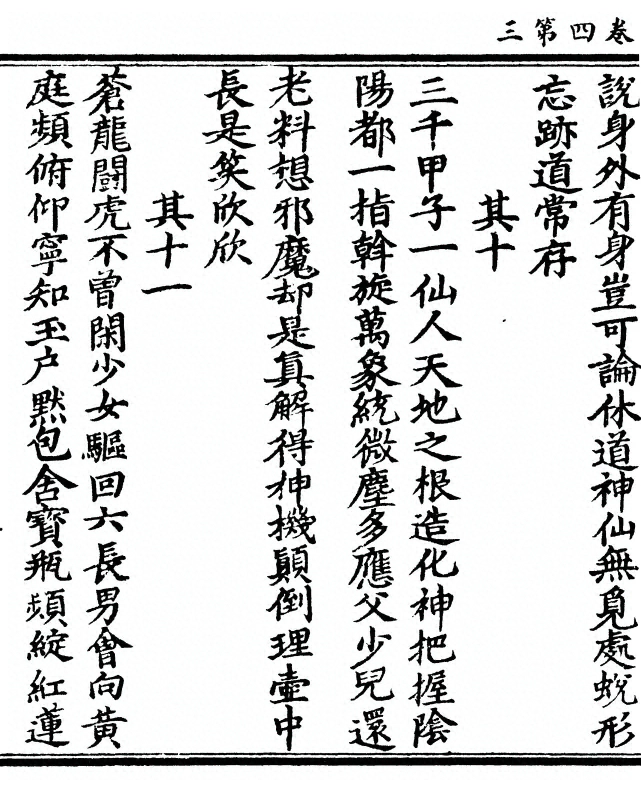 三第四卷
說身外有身豈可論休道神仙無覓處蛻形
忘跡道常存
其十
三千甲子一仙人天地之根造化神把握陰
陽都一指斡旋萬象統微塵多應父少兒還
老料想邪魔却是真解得神機顛倒理壷中
長是笑欣欣
其十一
蒼龍鬪虎不曾閑少女驅回六長男會向黃
庭頻俯仰寧知玉户黙包含寶瓶頻綻紅蓮